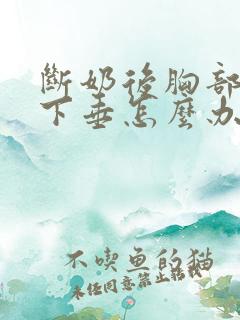 斷奶後胸部
下垂怎麼办
不喫鱼的猫
未经同意禁止转载